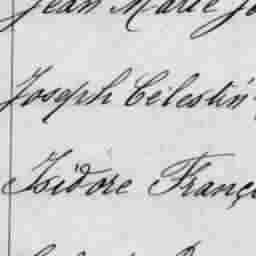 Jean Marie Jo
Joseph Célestin
Isidore Franç